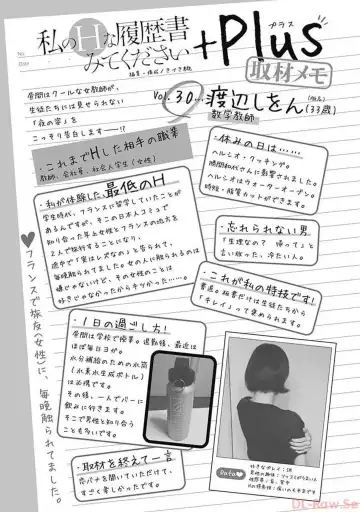 私のHな履歴書
みてください
+Plus
プラス
取材メモ
昼間はクールな女教師が、
生徒たちには見せられない
「夜の姿」を
こっそり告白します……!?
Vol.30…渡辺しをん(仮名)
(33歳)
数学教師
・これまでHした相手の職業
教師、会社員、社会人学生(女性)
・私が体験した最低のH
学生時代、フランスに留学していたことが
あるんですが、そこの日本人コミュで
知り合った年上女性とフランスの地方を
2人で旅行することになり、
途中で「実はレズなの」と告られて、
毎晩触られてました。女の人に触られるのは
嫌じゃないけど、その女性のことは
好きじゃなかったからキツかった……。
・休みの日は……
ヘルシオ・クッキング。
勝間和代さんに影響されました。
ヘルシオはウォーターオーブン。
時短・脂質カットができます。
・忘れられない男
「生理なの? 帰って」と
言い放った、冷たい人。
・これが私の特技です!
書道。板書だけは生徒たちから
「キレイ」って褒められます。
・1日の過ごし方!
昼間は学校で授業。退勤後、最近は
ほぼ毎日ヨガ。
水分補給のための水筒
(水素水生成ボトル)
は必携です。
その後、一人でバーに
飲みに行きます。
そこで男性と知り合う
ことも多いです。
・取材を終えて一言
恋バナを聞いていただけて、
すごく楽しかったです。
♥フランスで旅友(女性)に、毎晩触られてました。
Data♥
DL-Raw.Se